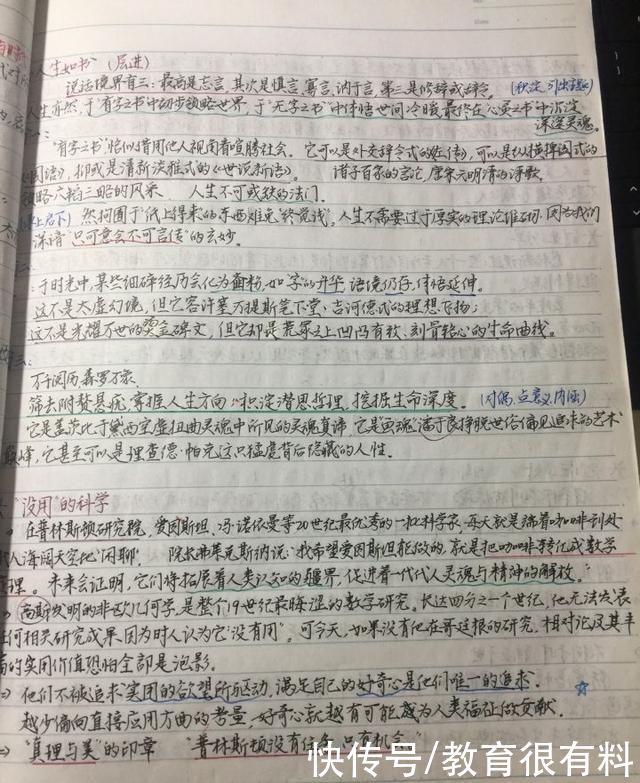 人生如书"（层进）
说话境界有三：最高是忘言，其次是慎言、寡言、讷于言，第三是修辞或辞令。（积淀，引出主题）
人生亦然，于"有字之书"中初步领略世界，于"无字之书"中体悟世间冷暖，最终在"心灵之书"中沉淀
深邃灵魂。
"有字之书"恰似借用他人视角看喧腾社会。它可以是外交辞令式的《左传》，可以是纵横捭阖式的
《国语》，抑或是清新淡雅式的《世说新语》。 诸子百家的言论，唐宋元明清的诗歌
领略六韬三略的风采 人生不可或缺的法门。
（承上启下） 然拘囿于"纸上得来"的东西难免"终觉浅"，人生不需要过于厚实的理论维砌，因为我们
深谙"只可意会不可言传"的玄妙。
于时光中，某些细碎经历会化为面粉，如"字"的升华，语境仍存，体悟延伸。
这不是太虚幻境，但它容许塞万提斯笔下堂·吉诃德式的理想飞扬；
这不是光耀万世的奠金碑文，但它却是荒冢之上凹凸有致、刻骨铭心的生命曲线。
万千阅历 森罗万象
筛去阴鸷悬疣，掌握人生方向，积淀潜思哲理，挖掘生命深度。（对偶，点意义、内涵）
它是盖茨比于黛西空虚扭曲灵魂中所见的灵魂真谛，它是"画魂"潘于良挣脱世俗偏见追求的艺术
巅峰，它甚至可以是理查德·帕克这只猛虎背后隐藏的人性。
"没用"的科学
在普林斯顿研究院，爱因斯坦、冯·诺依曼等20世纪最优秀的一批科学家，每天就是端着咖啡到处
找人海阔天空地"闲聊"， 院长弗莱克斯纳说："我希望爱因斯坦能做的，就是把咖啡转化成数学
定理。未来会证明，它们将拓展着人类认知的疆界，促进着一代代人灵魂与精神的解放。"
高斯发明的非欧几何学，是整个19世纪最晦涩的数学研究。长达四分之一个世纪，他无法发表
任何相关研究成果，因为时人认为它"没有用"。可今天，如果没有他在哥廷根的研究，相对论及其丰
富的实用价值恐怕全部是泡影。
他们不被追求实用的欲望所驱动，满足自己的好奇心是他们唯一的追求。
越少偏向直接应用方面的考量，好奇心就越有可能成为人类福祉做贡献。
"真理与美"的印章 "普林斯顿没有任务，只有机会"
快传号/教育很有料